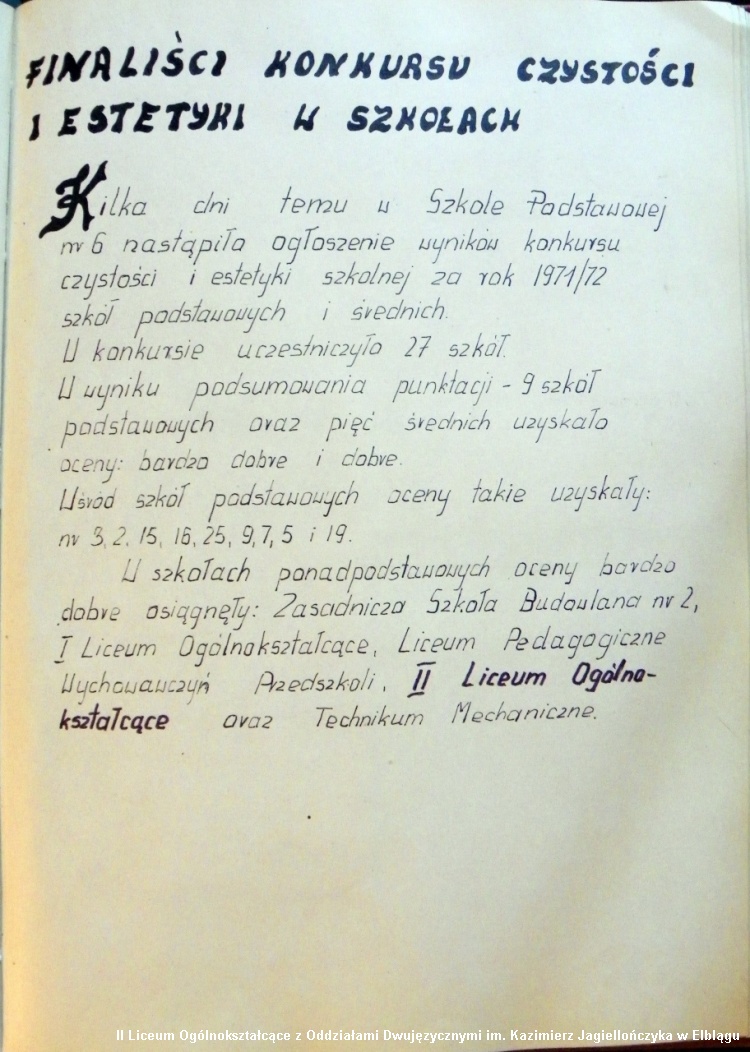 FINALIŚCI KONKURSU CZYSTOŚCI
I ESTETYKI W SZKOŁACH
Kilka dni temu w Szkole Podstawowej
nr 6 nastąpiło ogłoszenie wyników konkursu
czystości i estetyki szkolnej za rok 1971/72
szkół podstawowych i średnich.
W konkursie uczestniczyło 27 szkół.
W wyniku podsumowania punktacji - 9 szkół
podstawowych oraz pięć średnich uzyskało
oceny: bardzo dobre i dobre.
Wśród szkół podstawowych oceny takie uzyskały:
nr 3, 2, 15, 16, 25, 9, 7, 5 i 19.
W szkołach ponadpodstawowych oceny bardzo
dobre osiągnęły: Zasadnicza Szkoła Budowlana nr 2,
I Liceum Ogólnokształcące, Liceum Pedagogiczne
Wychowawczyń Przedszkoli, II Liceum Ogólno-
kształcące oraz Technikum Mechaniczne.
II Liceum Ogólnokształcące z Oddziałami Dwujęzycznymi im. Kazimierz Jagiellończyka w Elblągu